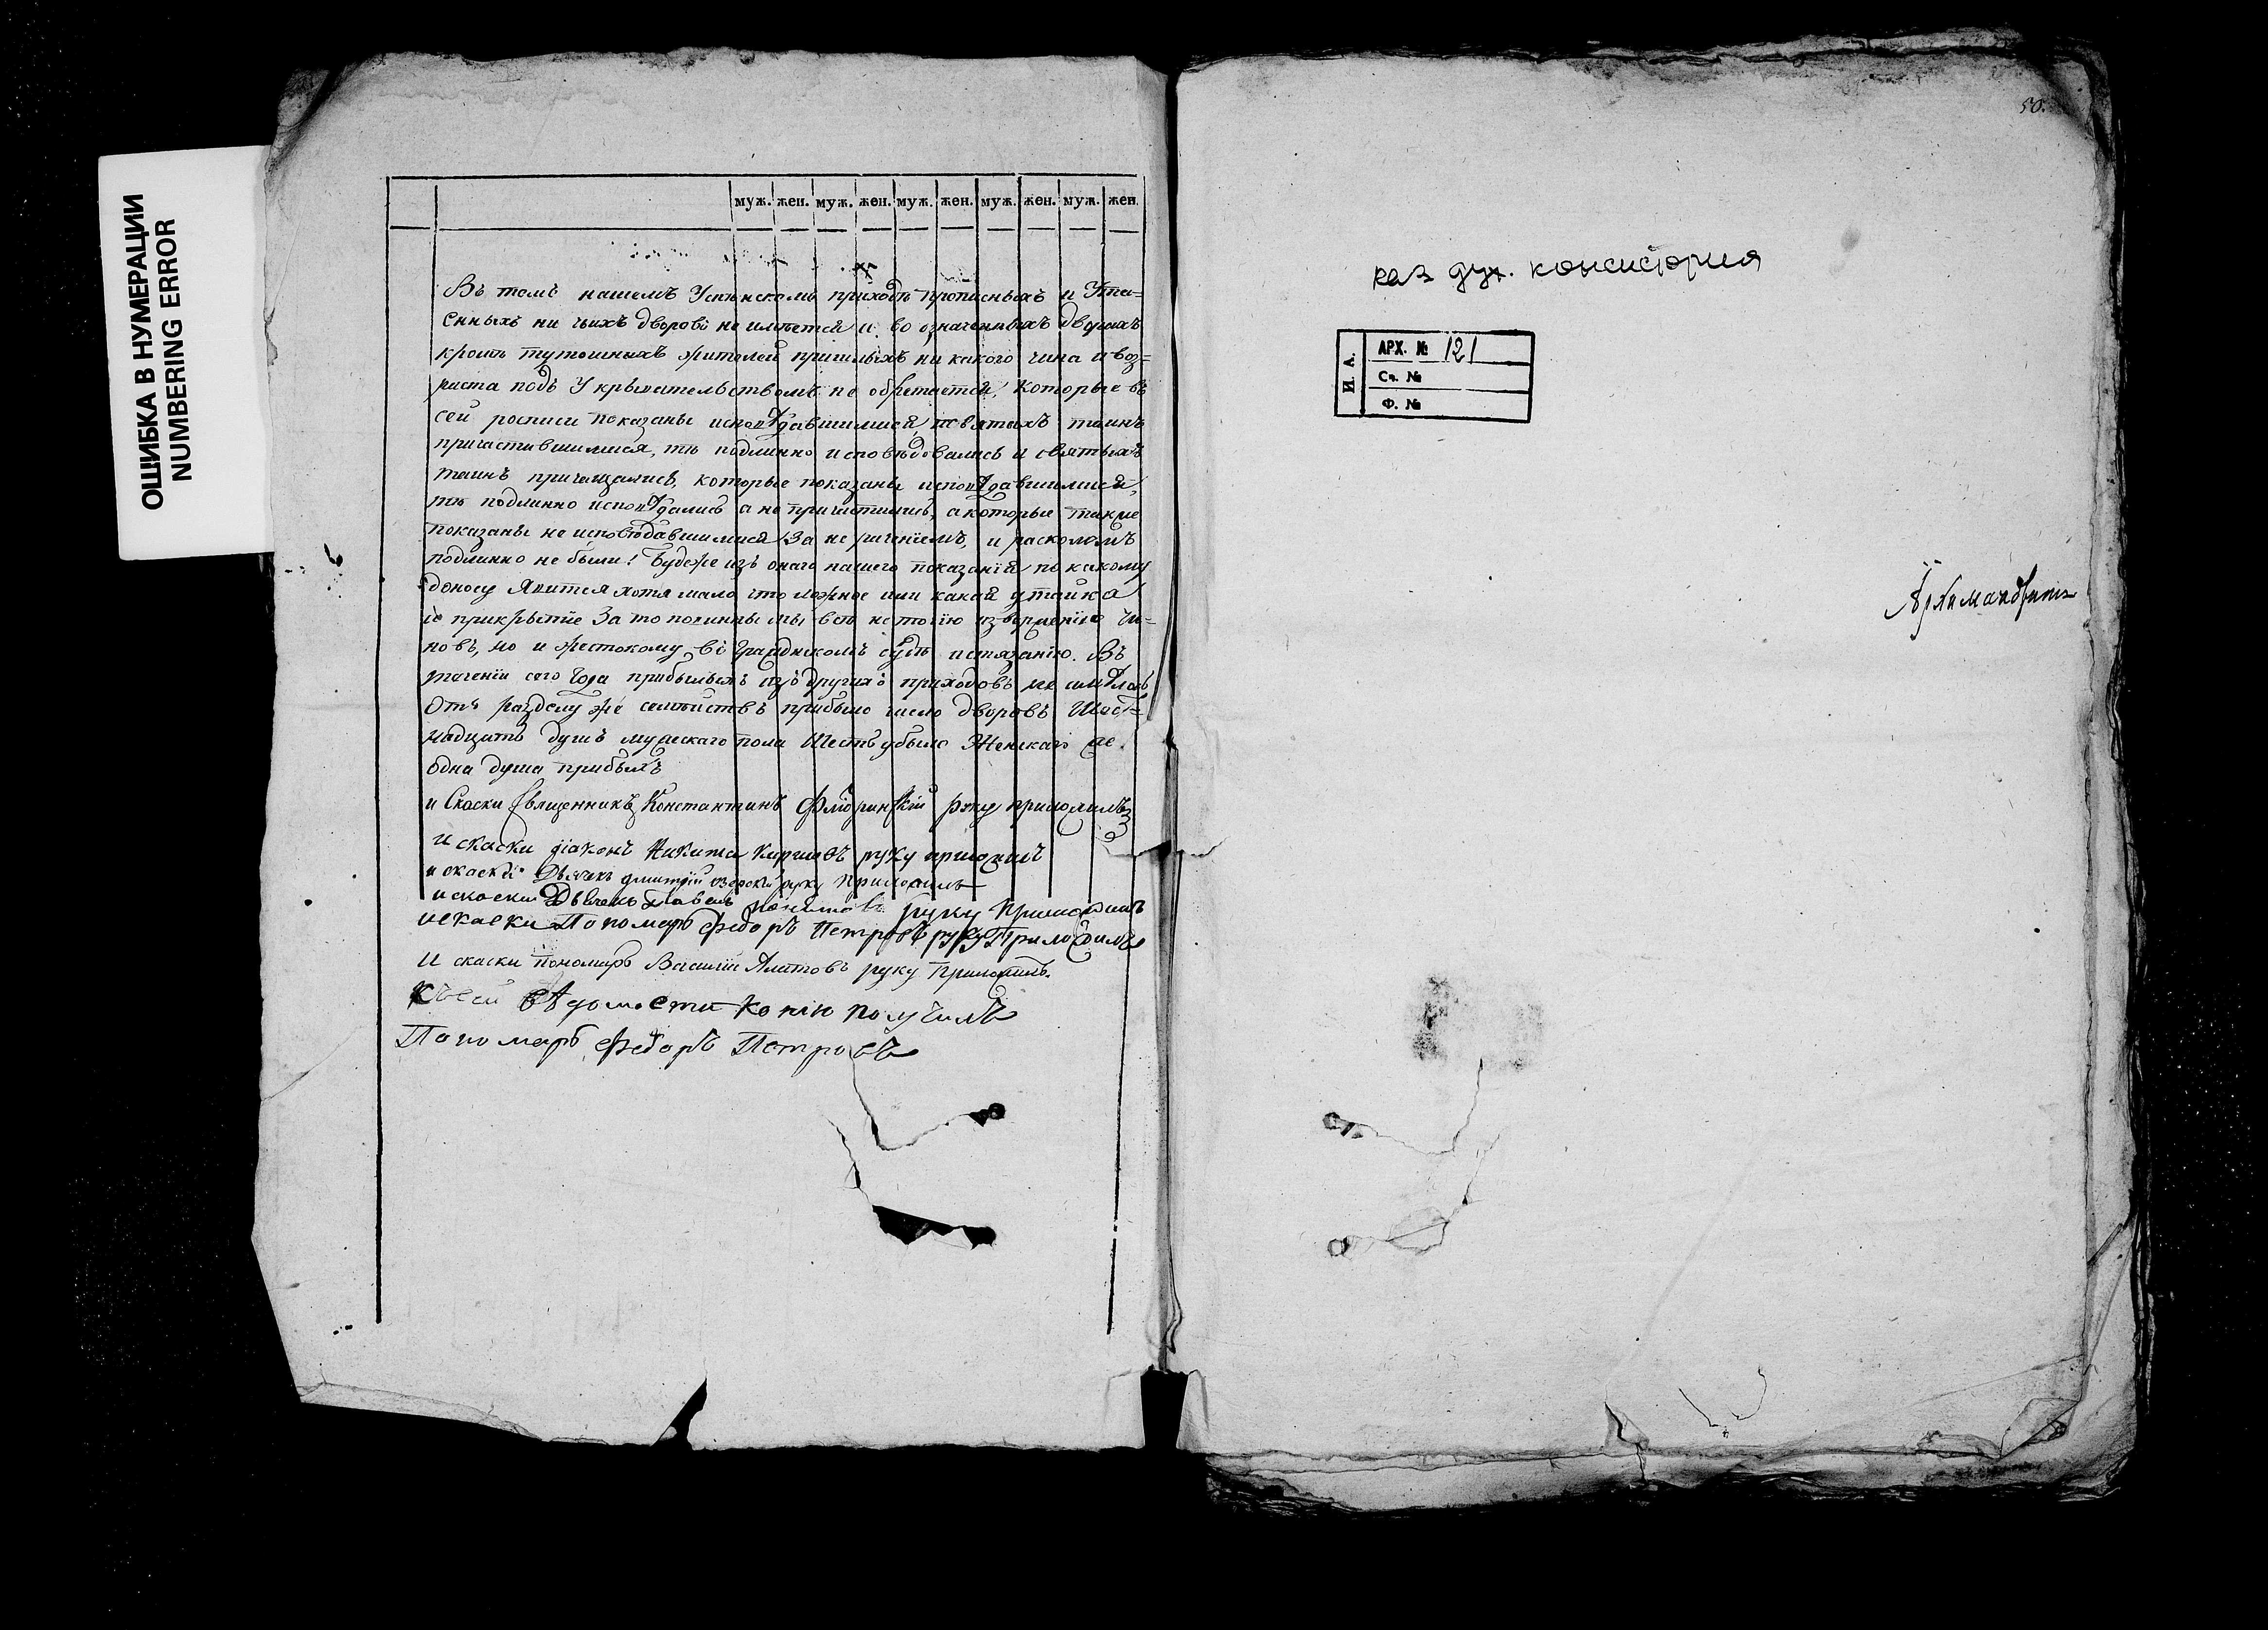 ОШИБКА В НУМЕРАЦИИ
NUMBERING ERROR
муж. жен. муж. жен. муж. жен. муж. жен. муж. жен.
Въ томъ нашемъ Успенскомъ приходѣ прописныхъ и Утае-
енныхъ ни чьихъ дворовъ не имѣется и во означенныхъ дворахъ
кромѣ тутошныхъ жителей пришлыхъ ни какого чина и воз-
раста подъ Укрывательствомъ не обретается, Которые въ
сей росписи показаны исповѣдавшимися, и святыхъ таинъ
причастившимися, тѣ подлинно исповѣдовались и святыхъ
таинъ причащались, которые показаны исповѣдавшимися,
тѣ подлинно исповѣдались а не причастились, а которые также
показаны не исповѣдавшимися За не рачениемъ, и расколомъ
подлинно не были! Будеже изъ онаго нашего показанія по какому
доносу Явится хотя мало что ложное или какая утайка
и прикрытіе За то повинны мы всѣ не токмо изверженію чи-
новъ, но и жестокому въ Гражданскомъ судѣ истязанію. Въ
теченіи сего Года прибылыхъ изъ другихъ приходовъ не имѣлось
Отъ разделу же семействъ прибыло число дворовъ Шест-
надцать душъ мужескаго пола Шесть убыло Женскаго же
одна душа прибыла
и Скаски священникъ Константинъ руку приложилъ
И скаски діаконъ Никита Кириловъ руку приложилъ
и скаски Дьячекъ дмитрій руку приложилъ
и скаски Дьячекъ Павелъ Никитовъ руку приложилъ
и скаски Пономарь Федоръ Петровъ руку Приложилъ
И скаски пономарь Василій руку приложилъ.
Къ сей вѣдомости копию получилъ
Пономарь Федоръ Петровъ
50.
каз дух. консистория
И. А.
АРХ. № 121
Сч. №
Ф. №
Архимандритъ